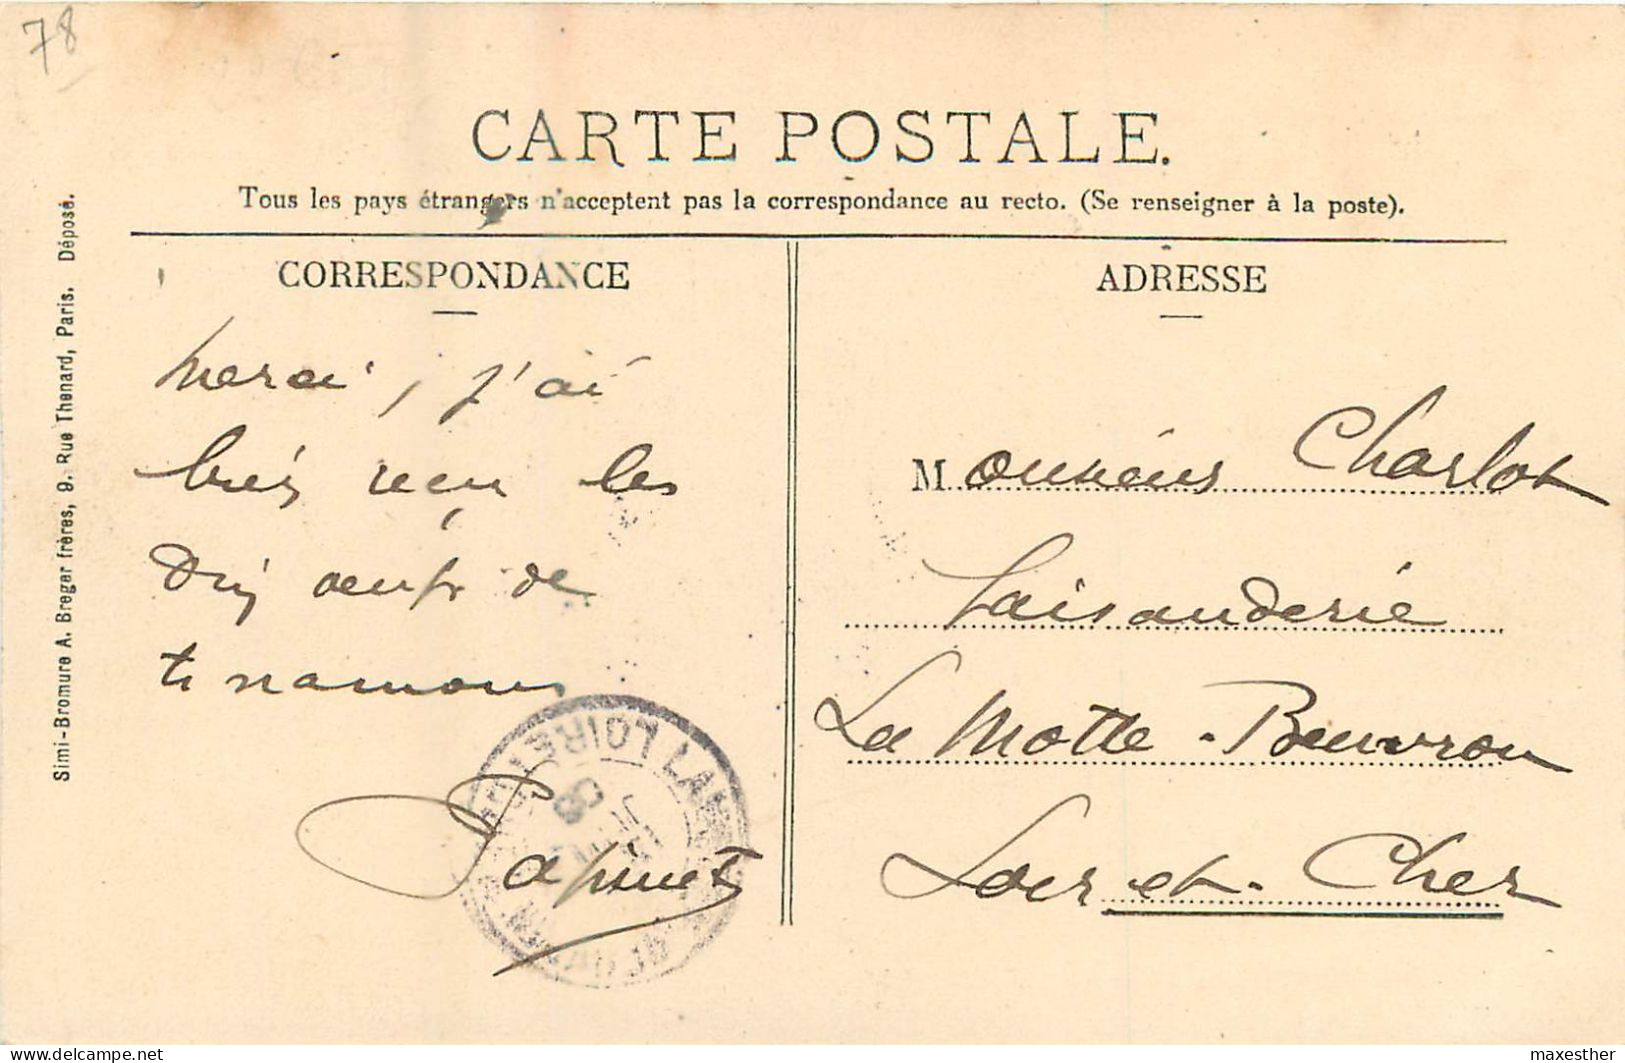 78
CARTE POSTALE.
Tous les pays étrangers n'acceptent pas la correspondance au recto. (Se renseigner à la poste).
CORRESPONDANCE
ADRESSE
Simi-Bromure A. Breger frères, 9. Rue Thenard, Paris. Déposé.
Merci, j'ai
reçu les
de
Monsieur Charlot
Faisanderie
La Motte-Beuvron
Loir-et-Cher
LOIR ET
LA
08
maxesther